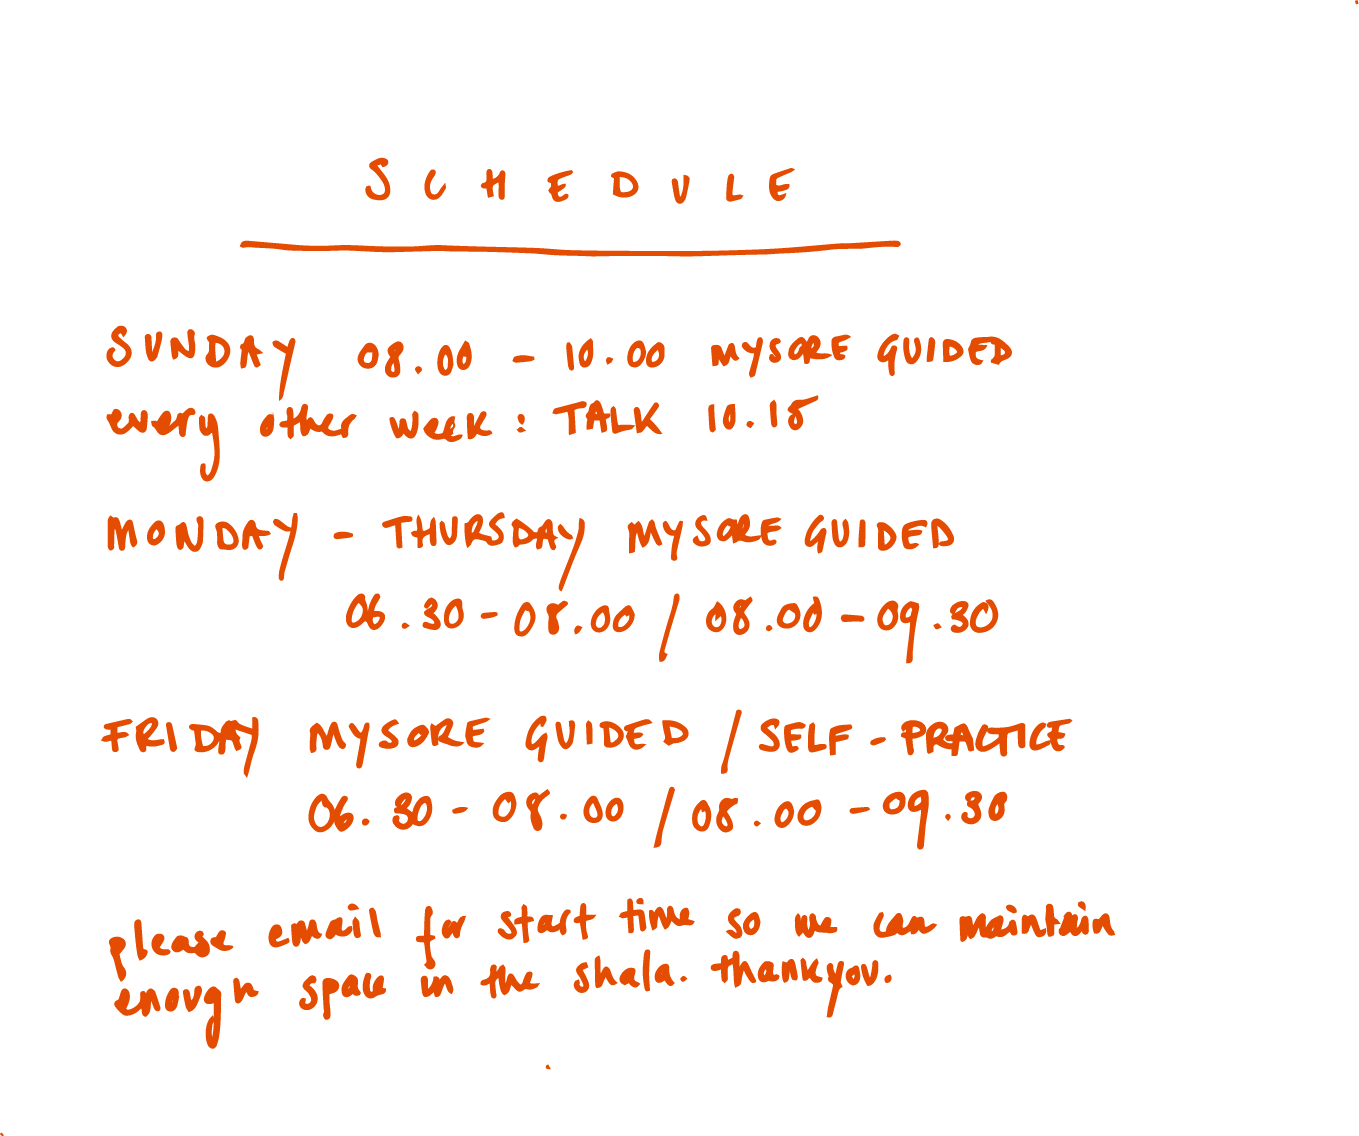 SCHEDULE
SUNDAY 08.00 - 10.00 MYSORE GUIDED
every other week: TALK 10.15
MONDAY - THURSDAY MYSORE GUIDED
06.30 - 08.00 / 08.00 - 09.30
FRIDAY MYSORE GUIDED / SELF - PRACTICE
06.30 - 08.00 / 08.00 - 09.30
please email for start time so we can maintain
enough space in the shala. thankyou.